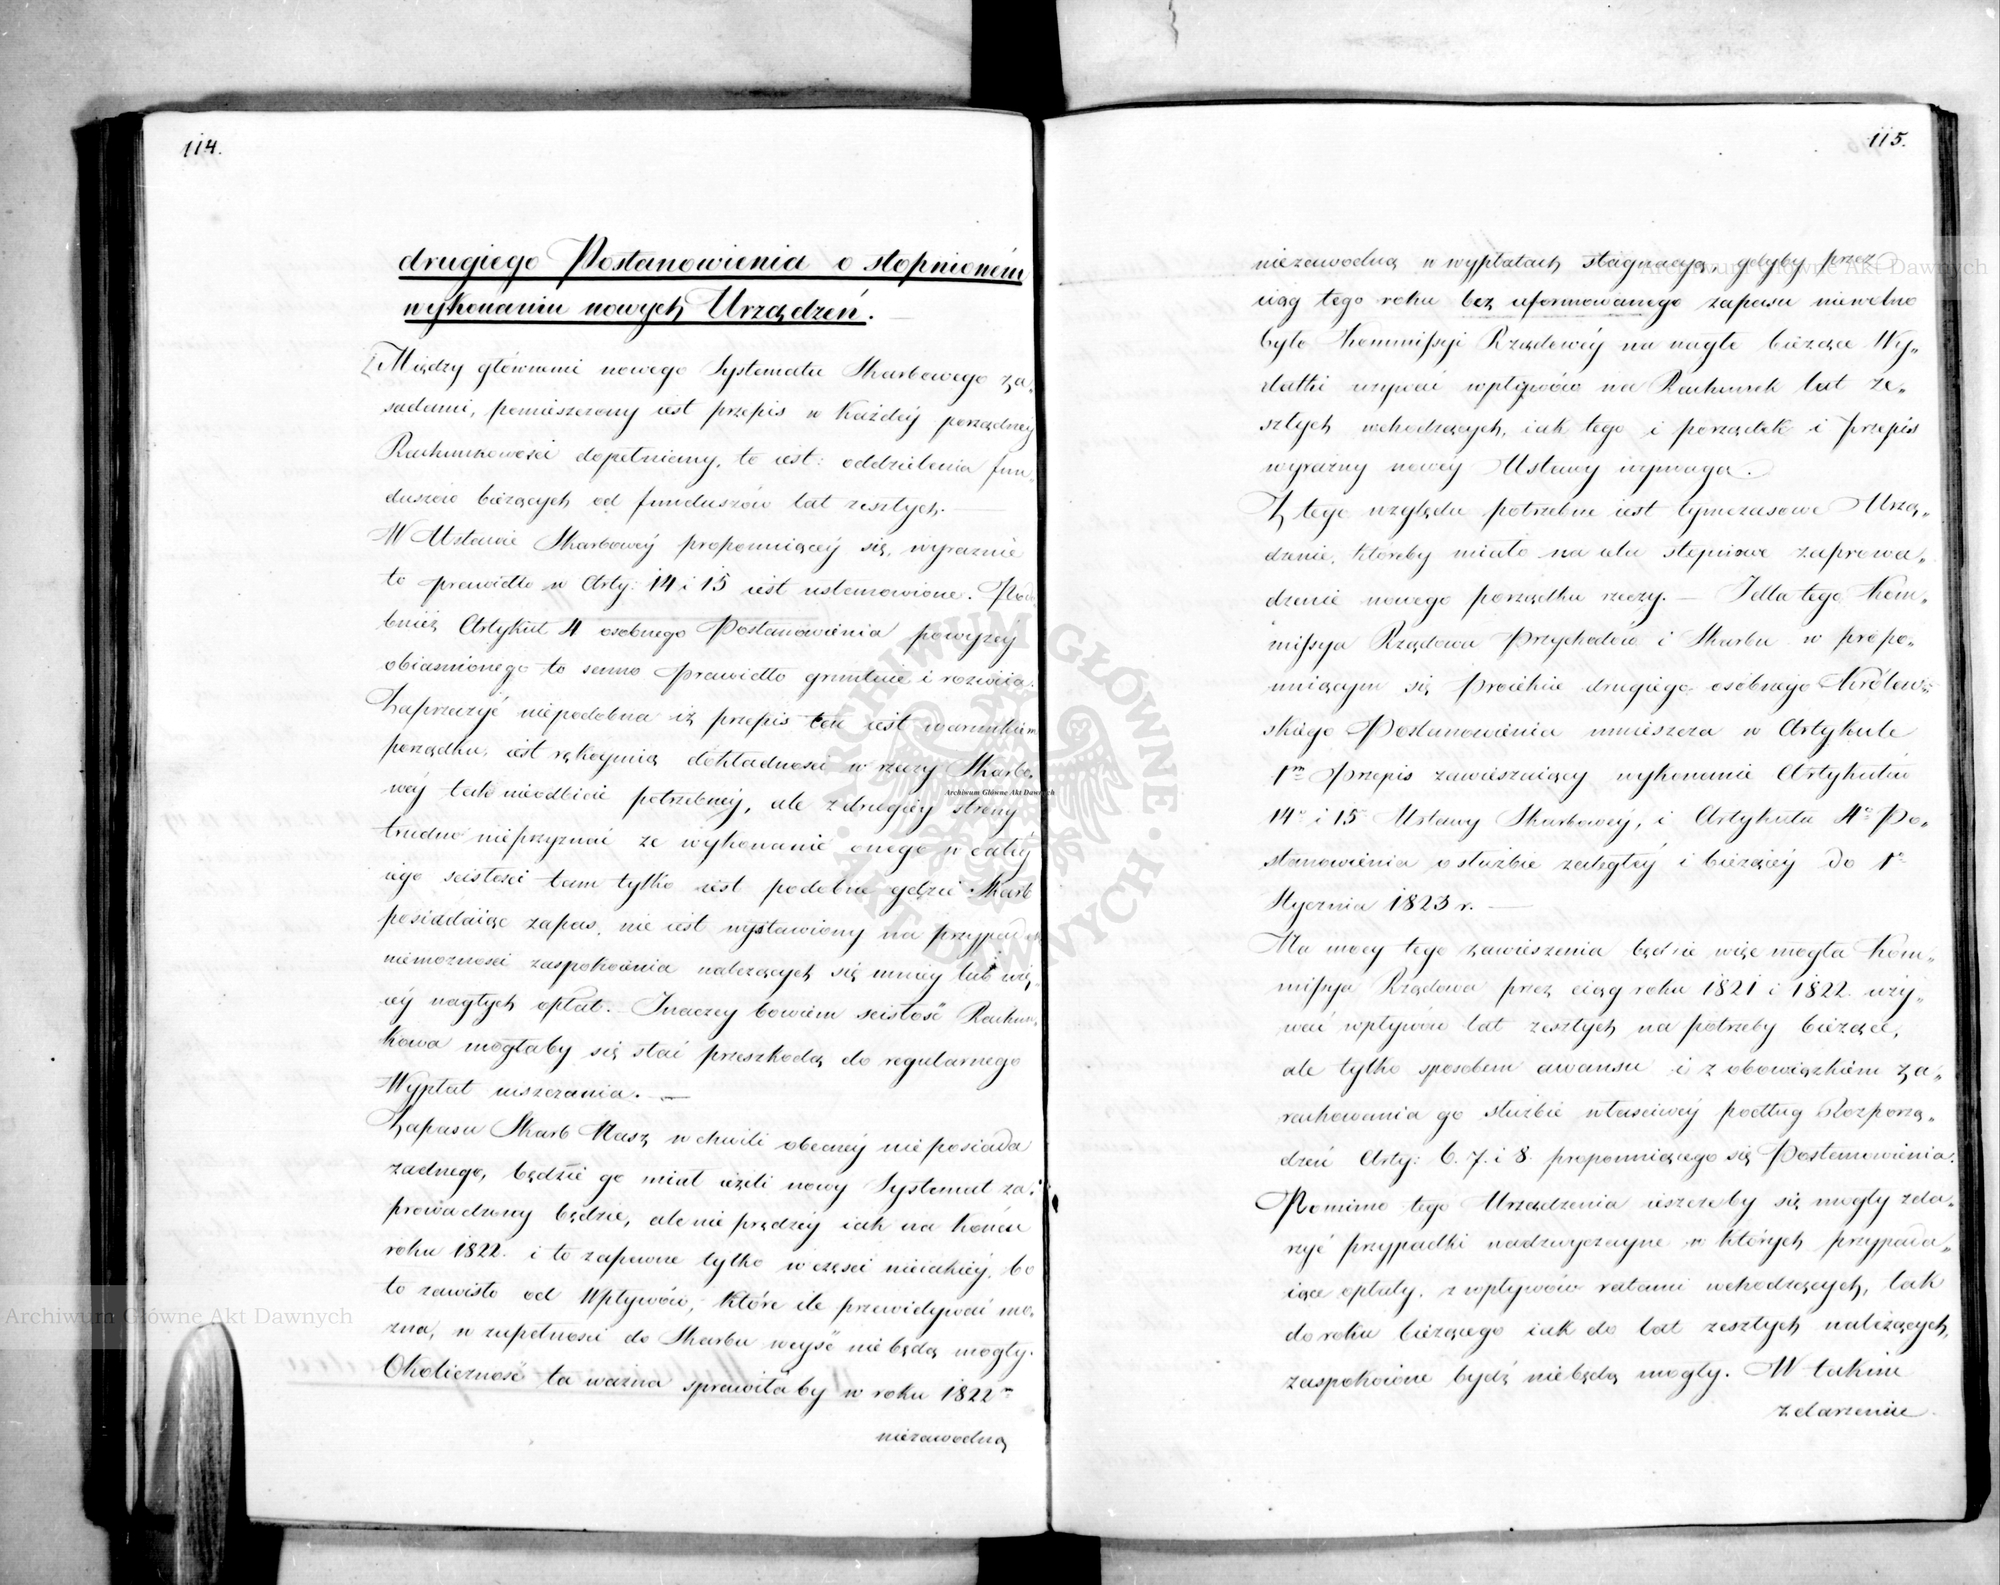 114.
drugiego Postanowienia o stopnioném
wykonaniu nowych Urządzeń.
Między głównemi nowego Systematu Skarbowego za„
sadami, pomieszczony iest przepis w każdéy porządnéy
Rachunkowości dopełniany, to iest: oddzielenia fun„
duszów bieżących od funduszów lat zeszłych.
W Ustawie Skarbowéy proponuiącéy się, wyraznie
to prawidło w Arty: 14 i 15 iest ustanowione. Podo
bnież Artykuł 4 osobnego Postanowienia powyzéy
obiasnionego to samo prawidło gruntuie i rozwiia.
Zaprzeczyć niepodobna iż przepis ten iest warunkiem
porządku, iest rękoymią dokładności w rzeczy Skarbo„
wéy tak nieodbicie potrzebnéy, ale z drugiéy strony
trudno nieprzyznać ze wykonanie onego w całéy
iego scisłości tam tylko iest podobne gdzie Skarb
posiadaiąc zapas, nie iest wystawiony na przypadek
niemożności zaspokoienia nalezących się mniéy lub wię„
céy nagłych opłat. Inaczey bowiem scisłość Rachun„
kowa mogłaby się stać przeszkodą do regularnego
Wypłat uiszczania.
Zapasu Skarb Nasz w chwili obecnéy nie posiada
zadnego, będzie go miał ieżeli nowy Systemat za„
prowadzony będzie, ale nie prędzéy iak na końcu
roku 1822. i to zapewne tylko w części nieiakiéy, bo
to zawisło od Wpływów, które ile przewidywać mo„
zna, w zupełności do Skarbu weyść nie będą mogły.
Okoliczność ta ważna sprawiłaby w roku 1822m
niezawodną
115.
niezawodną w wypłatach stagnacyą, gdyby przez
ciąg tego roku bez uformowanego zapasu niewolno
było Kommissyi Rządowéy na nagłe bieżące Wy„
datki uzywać wpływów na Rachunek lat ze„
szłych wchodzących, iak tego i porządek i przepis
wyraźny nowéy Ustawy wymaga.
Z tego względu potrzebne iest tymczasowe Urzą„
dzenie, któreby miało na celu stopniowe zaprowa„
dzenie nowego porządku rzeczy. — I dla tego Kom„
missya Rządowa Przychodów i Skarbu w propo„
nuiącym się Proiekcie drugiego osobnego Królew„
skiego Postanowienia umieszcza w Artykule
1m Przepis zawieszaiący wykonanie Artykułów
14o i 15 Ustawy Skarbowéy, i Artykułu 4o Po„
stanowienia o służbie zaległéy i bieżącéy do 1o
Stycznia 1823 r.
Na mocy tego zawieszenia będzie więc mogła Kom„
missya Rządowa przez ciąg roku 1821 i 1822. uży„
wać wpływów lat zeszłych na potrzeby bieżące,
ale tylko sposobem awansu i z obowiązkiem za„
rachowania go służbie właściwéy podług Rozporzą„
dzeń Arty: 6. 7. i 8. proponuiącego się Postanowienia.
Pomimo tego Urządzenia ieszczeby się mogły zda„
rzyć przypadki nadzwyczayne w których przypada„
iące opłaty, z wpływów ratami wchodzących, tak
do roku bieżącego iak do lat zeszłych należących,
zaspokoione bydź nie będą mogły. W takim
zdarzeniu
Archiwum Główne Akt Dawnych
Archiwum Główne Akt Dawnych
Archiwum Główne Akt Dawnych
ARCHIWUM GŁÓWNE · AKT DAWNYCH ·